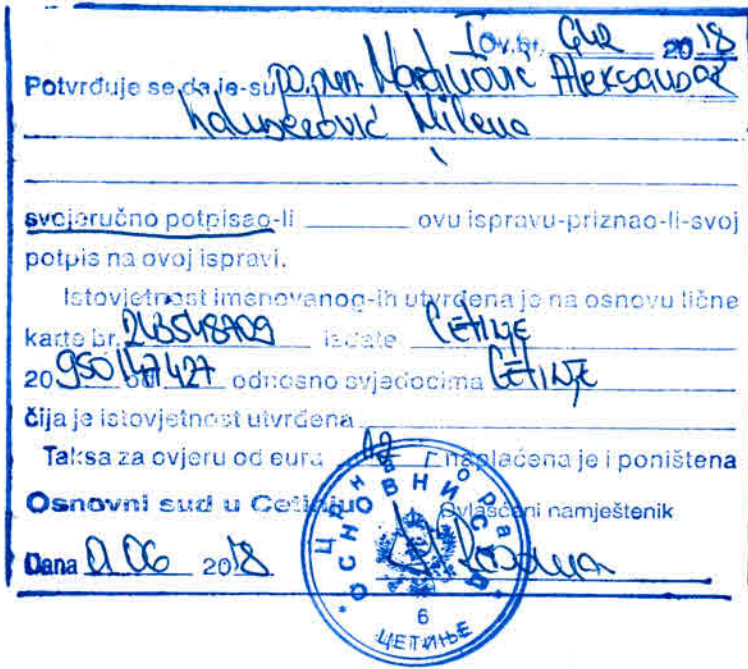 I Ov.br. 642 2018
Potvrđuje se da je-su po.pun. Martinović Aleksandar
Kaluđerović Milena
svojeručno potpisao-li ovu ispravu-priznao-li-svoj
potpis na ovoj ispravi.
Istovjetnost imenovanog-ih utvrđena je na osnovu lične
karte br. 243548709 izdate Cetinje
20 950147427 od odnosno svjedocima Cetinje
čija je istovjetnost utvrđena
Taksa za ovjeru od eura naplaćena je i poništena
Osnovni sud u Cetinju Ovlašćeni namještenik
Dana 06 2018
Црна Гора
ОСНОВНИ СУД
6
ЦЕТИЊЕ